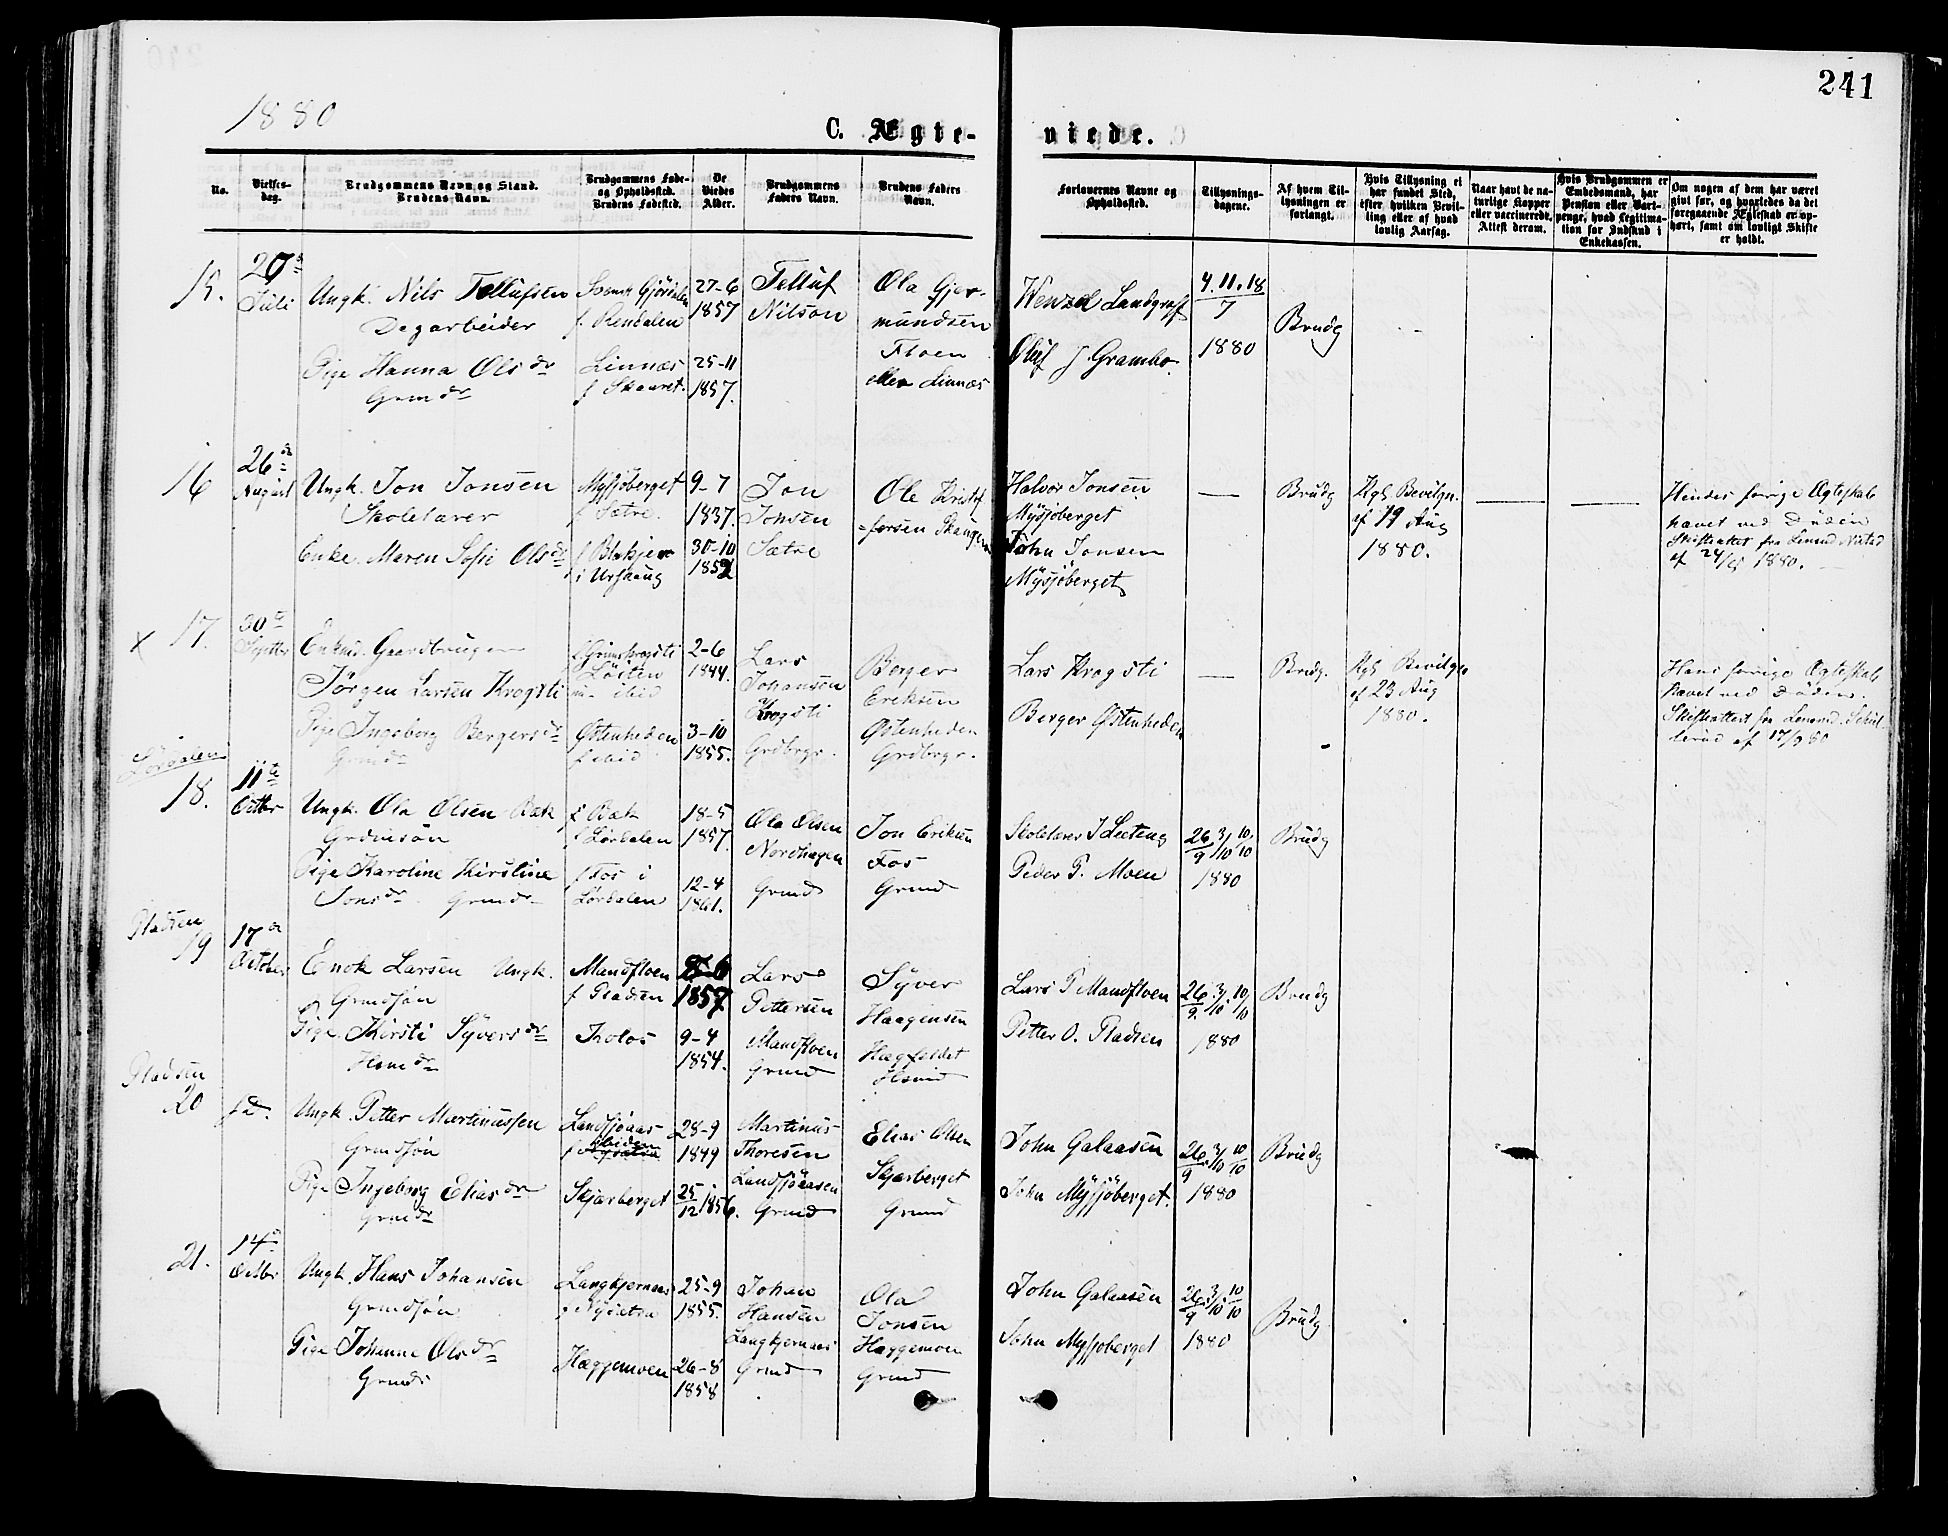 241
1880
C. Ægte-
viede.
No.
Vielses-
dag.
Brudgommens Navn og Stand.
Brudens Navn.
Brudgommens Føde-
og Opholdssted.
Brudens Fødested.
De
Viedes
Alder.
Brudgommens
Faders Navn.
Brudens Faders
Navn.
Forlovernes Navne og
Opholdssted.
Tillysnings-
dagene.
Af hvem Til-
lysningen er
forlangt.
Hvis Tillysning ei
har fundet Sted,
efter hvilken Bevil-
ling eller af hvad
lovlig Aarsag.
Naar havt de na-
turlige Kopper
eller vaccinerede.
Attest derom.
Hvis Brudgommen er
Embedsmand, har
Pension eller Vart-
penge, hvad Legitima-
tion for Indskud i
Enkekassen.
Om nogen af dem har været
givt før, og hvorledes da det
foregaaende Ægteskab er op-
hørt, samt om lovligt Skifte
er holdt.
15.
20de
Juli
Ungk. Nils Tellufsen
Dagarbeider
Pige Hanna Olsdr
Grmdr
f. Rendalen
Linnæs
f Skauret.
27-6
1857
25-11
1857.
Telluf
Nilson
Ola Gjer-
mundsen
Floen
eller Linnæs
Wenzel Landgraff
Oluf J. Grambo.
4.11.18
7
1880
Brudg
16
26de
August
Ungk. Jon Jonsen
Skolelærer
Enke Maren Sofie Olsdr
Mysjøberget
f Sætre.
f Blakjer
i Urskaug
9-7
1837.
30-10
1852
Jon
Jonsen
Sætre
Ole Kristof
=fersen Skaugen
Halvor Jonsen
Mysjøberget
John Jonsen
Mysjøberget
—
Brudg
Kgl Bevilgn.
af 19 Aug
1880.
Hendes forrige Ægteskab
hævet ved Døden
Skifteattest fra Lensmd
af 1880.
x 17.
30te
Septbr
Enkmd. Gaardbruger
Jörgen Larsen Krogsti
Pige Ingeborg Bergersdr
Grmdr
Löiten
Østenheden
f ibid
2-6
1844.
3-10
1855.
Lars
Johansen
Krogsti
Grdbrgr.
Berger
Eriksen
Østenheden
Grdbrgr.
Lars Krogsti
Berger Østenheden
—
Brudg.
Kgl Bevilgn
af 23 Aug
1880.
Hans forrige Ægteskab
hævet ved Döden.
Skifteattest fra Lensmd.
af 17/9 80
Lördalen
18.
11te
Octbr
Ungk. Ola Olsen Bæk
Grdmsøn
Pige Karoline Kirstine
Jonsdr Grmdr
f Bæk
f Lördalen
f Fos i
Lördalen
18-5
1857.
12-4
1861.
Ola Olsen
Nordhagen
Grmd
Jon Eriksen
Fos
Grmd
Skolelærer J Leeteng
Peder P. Moen
26/9 3/10 10/10
1880
Brudg
Pladsen
19
17de
October
Enok Larsen Ungk.
Grmdsøn
Pige Kirsti Syversdr
Hsmdr
Mandfloen
f Pladsen
Tholos
8-6
1857
9-4
1854.
Lars
Pettersen
Mandfloen
Grmd
Syver
Haagensen
Hægfeldet
Hsmd
Lars P Mandfloen
Petter O. Pladsen
26/9 3/10 10/10
1880
Brudg
Pladsen
20
Ungk. Petter Martinussen
Grmdsøn
Pige Ingeborg Eliasdr
Grmdr
Landsjøaas
Skjærberget
28-9
1849
25/12 1856.
Martinus
Thoresen
Landsjöaasen
Grmd
Elias Olsen
Skjærberget
Grmd
John Galaasen
John Mysjöberget.
26/9 3/10 10/10
1880
Brudg
21.
14de
Octbr
Ungk. Hans Johansen
Grmdsøn
Pige Johanne Olsdr
Grmdr
Langkjernaas
Hæggemoen
25-9
1855.
26-8
1858
Johan
Hansen
Langkjernaas
Grmd
Ola
Jonsen
Hæggemoen
Grmd
John Galaasen
John Mysjøberget
26/9 3/10 10/10
1880
Brudg